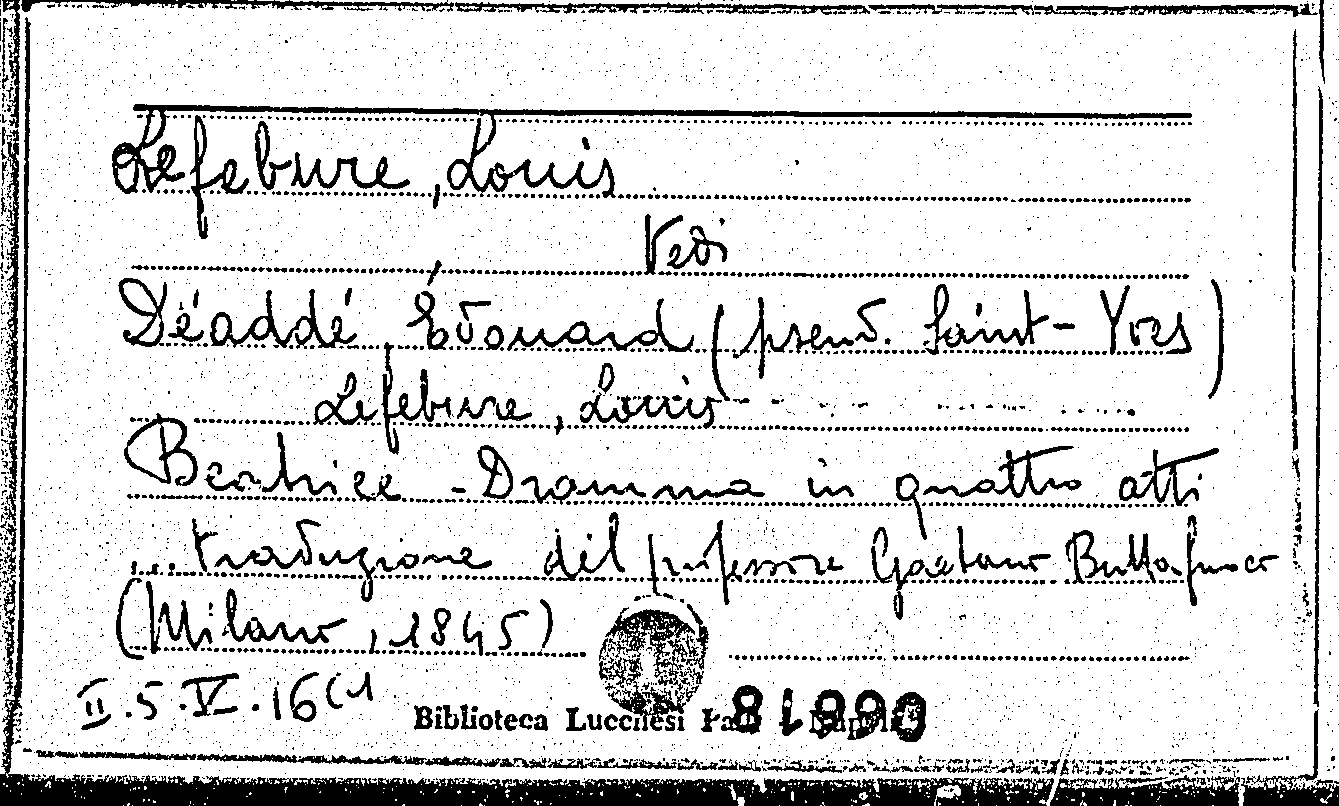 Lefebure, Louis
Vedi
Déaddé, Édouard (pseud. Saint-Yves)
Lefebure, Louis
Beatrice - Dramma in quattro atti
... traduzione del professore Gaetano Buttafuoco
(Milano, 1845)
II.5.V.16(1
Biblioteca Lucchesi Palli Napoli